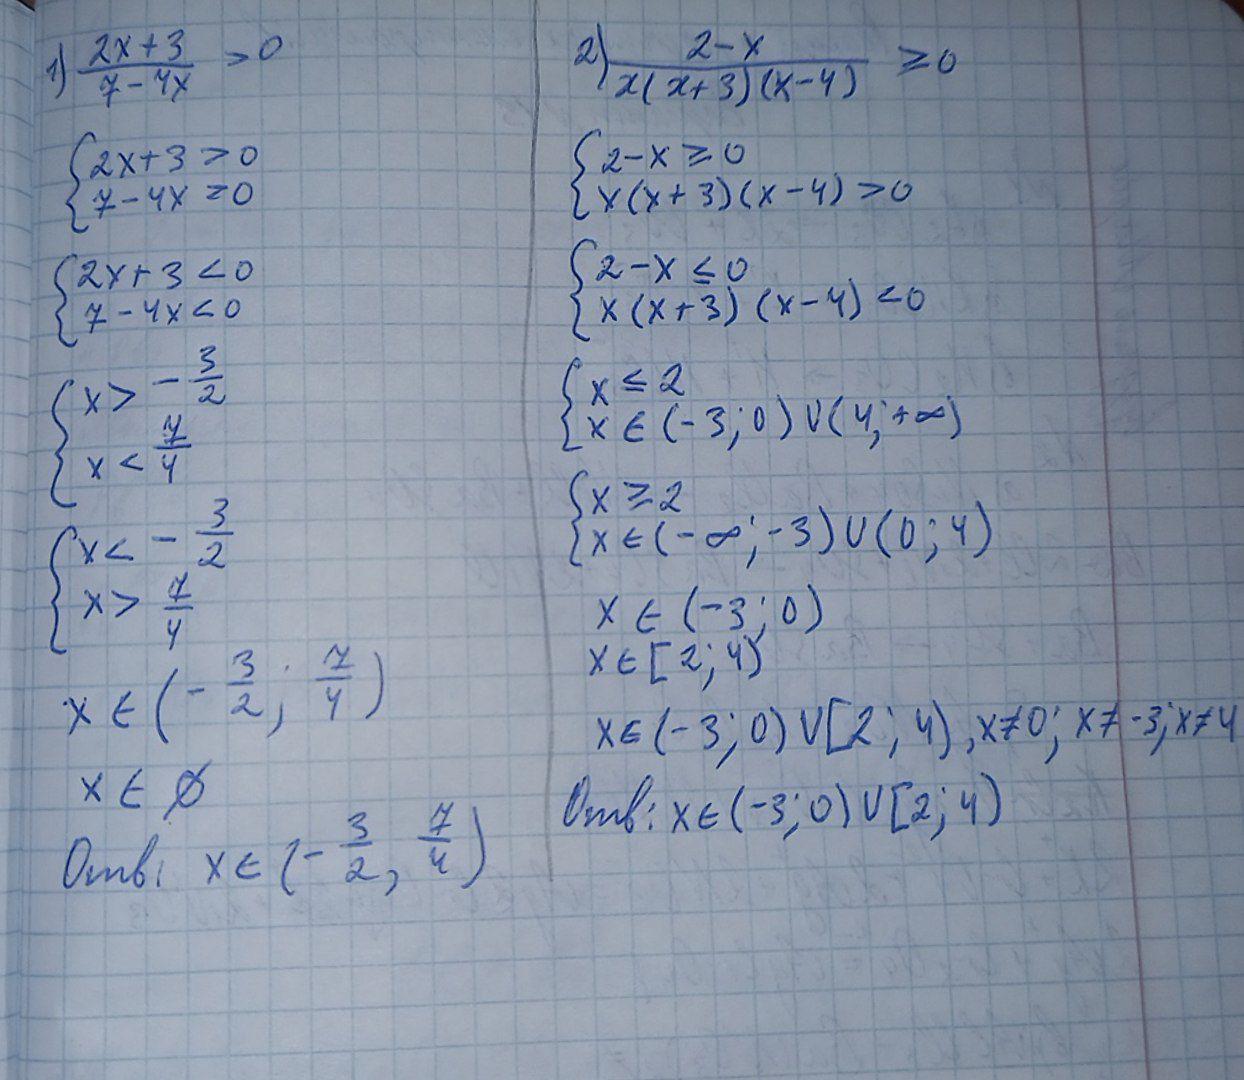 1) (2x+3)/(7-4x) > 0
{2x+3 > 0
7-4x > 0
{2x+3 < 0
7-4x < 0
{x > -3/2
x < 7/4
{x < -3/2
x > 7/4
x ∈ (-3/2; 7/4)
x ∈ ∅
Отв: x ∈ (-3/2, 7/4)
2) (2-x)/(x(x+3)(x-4)) ≥ 0
{2-x ≥ 0
x(x+3)(x-4) > 0
{2-x ≤ 0
x(x+3)(x-4) < 0
{x ≤ 2
x ∈ (-3; 0) ∪ (4; +∞)
{x ≥ 2
x ∈ (-∞; -3) ∪ (0; 4)
x ∈ (-3; 0)
x ∈ [2; 4)
x ∈ (-3; 0) ∪ [2; 4), x≠0; x≠-3; x≠4
Отв: x ∈ (-3; 0) ∪ [2; 4)